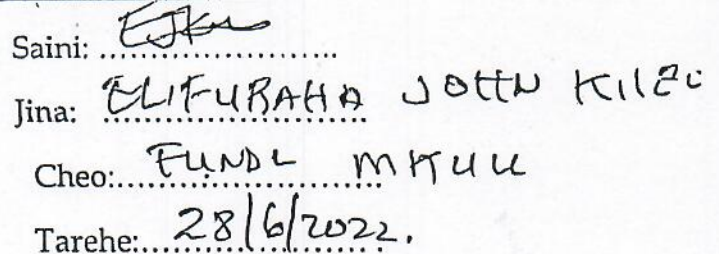 Saini: ........................
Jina: ELIFURAHA JOHN
Cheo:........................ FUNDI MKUU
Tarehe:........................ 28/6/2022.